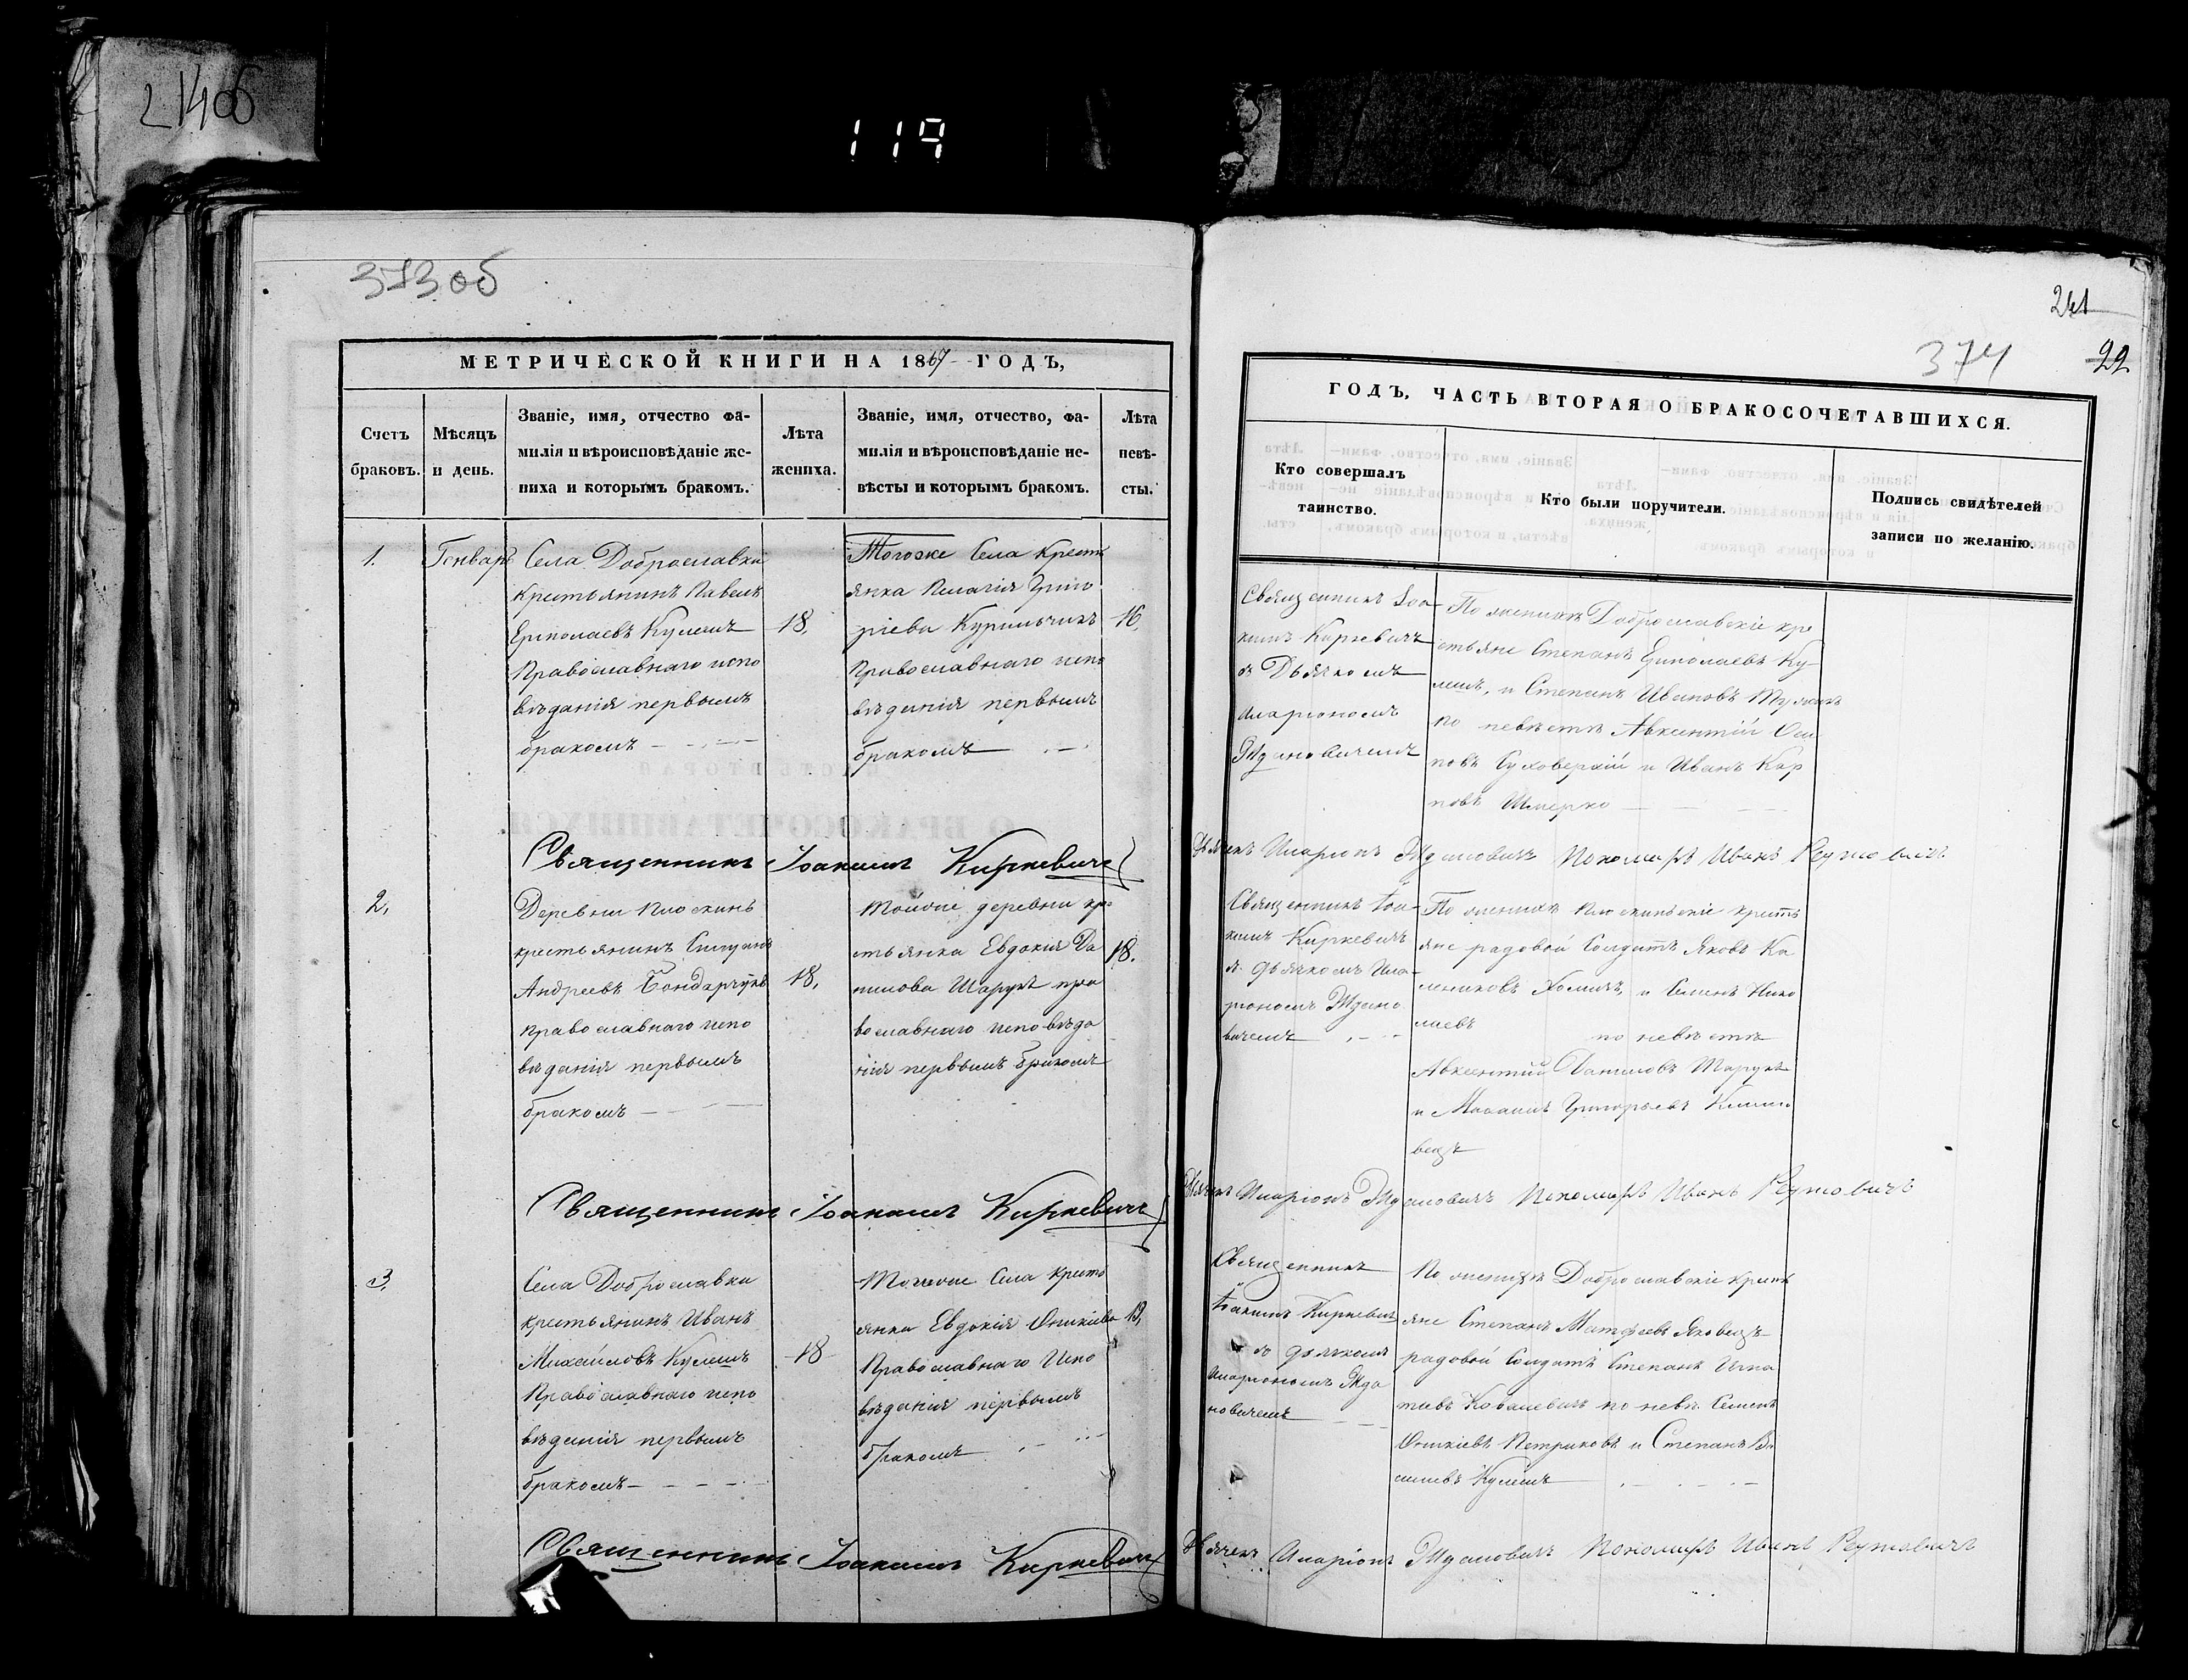 21406
119
373 об
МЕТРИЧЕСКОЙ КНИГИ НА 1867 ГОДЪ,
Счетъ браковъ.
Мѣсяцъ и день.
Званіе, имя, отчество фа-
милія и вѣроисповѣданіе же-
ниха и которымъ бракомъ.
Лѣта
жениха.
Званіе, имя, отчество, фа-
милія и вѣроисповѣданіе не-
вѣсты и которымъ бракомъ.
Лѣта
невѣ-
сты.
1.
Генварь
Села Доброславки
крестьянинъ Павелъ
Ермолаевъ Кулешъ
Православнаго испо
вѣданія первымъ
бракомъ
18,
Тогоже Села Кресть
янка Пелагія Григо
ріева
Православнаго испо
вѣданія первымъ
бракомъ
16,
Священникъ Іоакимъ Киркевичъ
2,
Деревни Плоскинь
крестьянинъ
Андреевъ Бондарчукъ
православнаго испо
вѣданія первымъ
бракомъ
18,
Тойже деревни кре
стьянка Евдокія Да
нилова Шарухъ пра
вославнаго исповѣда
нія первымъ бракомъ
18.
Священникъ Іоакимъ Киркевичъ
3,
Села Доброславки
крестьянинъ Иванъ
Михайловъ Кулешъ
Православнаго испо
вѣданія первымъ
бракомъ
18
Тогоже Села кресть
янка Евдокія Оникіева
Православнаго Испо
вѣданія первымъ
бракомъ
Священникъ Іоакимъ Киркевичъ
241
374
22
ГОДЪ, ЧАСТЬ ВТОРАЯ О БРАКОСОЧЕТАВШИХСЯ.
Кто совершалъ
таинство.
Кто были поручители.
Подпись свидѣтелей
записи по желанію.
Священникъ Іоа-
кимъ Киркевичъ
съ Дьячкомъ
Иларіономъ
Ждановичемъ
По женихѣ Доброславскіе кре
стьяне Степанъ Ермолаевъ Ку-
лешъ, и Степанъ Ивановъ
по невѣстѣ Авксентій Оси
повъ Суховерхій и Иванъ Кар
повъ Шмерко
Дьячекъ Иларіонъ Ждановичъ Пономарь Иванъ Реутовичъ
Священникъ Іоа-
кимъ Киркевичъ
съ дьячкомъ Ила-
ріономъ Ждано
вичемъ
По женихѣ Плоскинскіе кресть
яне рядовой Солдатъ Яковъ
Хомичъ, и Семенъ Нико
лаевъ по невѣстѣ
Авксентій Даниловъ Шарухъ
и Григорьевъ Климо
вецъ
Дьячекъ Иларіонъ Ждановичъ Пономарь Иванъ Реутовичъ
Священникъ
Іоакимъ Киркевичъ
съ дьячкомъ
Иларіономъ Жда
новичемъ
По женихѣ Доброславскіе кресть
яне Степанъ Матфеевъ Яковецъ
рядовой Солдатъ Степанъ Игна
тьевъ Ковалевичъ по невѣ. Семенъ
Оникіевъ Петриковъ и Степанъ Ва
сильевъ Кулешъ
Дьячекъ Иларіонъ Ждановичъ Пономарь Иванъ Реутовичъ